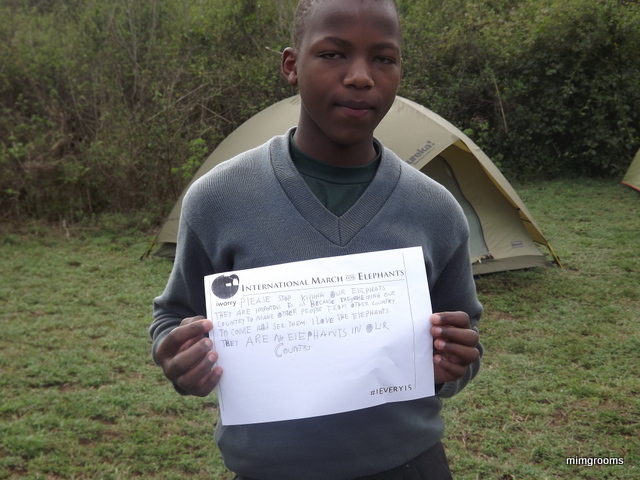 Eureka!
INTERNATIONAL MARCH FOR ELEPHANTS
iworry
PLEASE STOP KILLING OUR ELEPHANTS
THEY ARE IMPORTANT BECAUSE OUR
COUNTRY TO MAKE OTHER PEOPLE FROM OTHER COUNTRY
TO COME AND SEE THEM I LOVE THE ELEPHANTS
THEY ARE ELEPHANTS IN OUR
COUNTRY
#1EVERY15
mimgrooms